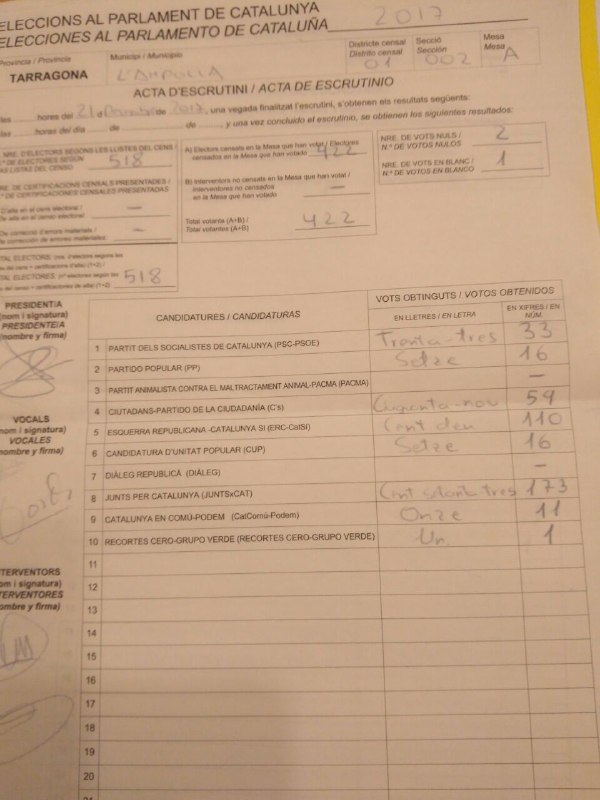 ELECCIONS AL PARLAMENT DE CATALUNYA
ELECCIONES AL PARLAMENTO DE CATALUÑA 2017
Província / Provincia
TARRAGONA
Municipi / Municipio
L'AMPOLLA
Districte censal
Distrito censal
01
Secció
Sección
002
Mesa
Mesa
A
ACTA D'ESCRUTINI / ACTA DE ESCRUTINIO
hores del 21 d Desembre de 2017, una vegada finalitzat l'escrutini, s'obtenen els resultats següents:
horas del día de de , y una vez concluido el escrutinio, se obtienen los siguientes resultados:
NRE. D'ELECTORS SEGONS LES LLISTES DEL CENS /
N.º DE ELECTORES SEGÚN
LAS LISTAS DEL CENSO
518
NRE. DE CERTIFICACIONS CENSALS PRESENTADES /
N.º DE CERTIFICACIONES CENSALES PRESENTADAS
D'alta en el cens electoral /
De alta en el censo electoral
—
De correcció d'errors materials /
De corrección de errores materiales
—
518
A) Electors censats en la Mesa que han votat / Electores
censados en la Mesa que han votado
422
B) Interventors no censats en la Mesa que han votat /
Interventores no censados
en la Mesa que han votado
—
Total votants (A+B) /
Total votantes (A+B)
422
NRE. DE VOTS NULS /
N.º DE VOTOS NULOS
2
NRE. DE VOTS EN BLANC /
N.º DE VOTOS EN BLANCO
1
PRESIDENT/A
(nom i signatura)
PRESIDENTE/A
(nombre y firma)
VOCALS
(nom i signatura)
VOCALES
(nombre y firma)
INTERVENTORS
(nom i signatura)
INTERVENTORES
(nombre y firma)
CANDIDATURES / CANDIDATURAS
VOTS OBTINGUTS / VOTOS OBTENIDOS
EN LLETRES / EN LETRA
EN XIFRES / EN NÚM.
1 PARTIT DELS SOCIALISTES DE CATALUNYA (PSC-PSOE) Trenta-tres 33
2 PARTIDO POPULAR (PP) Setze 16
3 PARTIT ANIMALISTA CONTRA EL MALTRACTAMENT ANIMAL-PACMA (PACMA) —
4 CIUTADANS-PARTIDO DE LA CIUDADANÍA (C's) Cinquanta-nou 59
5 ESQUERRA REPUBLICANA-CATALUNYA SÍ (ERC-CatSí) Cent deu 110
6 CANDIDATURA D'UNITAT POPULAR (CUP) Setze 16
7 DIÀLEG REPUBLICÀ (DIÀLEG) —
8 JUNTS PER CATALUNYA (JUNTSxCAT) Cent setanta tres 173
9 CATALUNYA EN COMÚ-PODEM (CatComú-Podem) Onze 11
10 RECORTES CERO-GRUPO VERDE (RECORTES CERO-GRUPO VERDE) Un 1
11
12
13
14
15
16
17
18
19
20
21